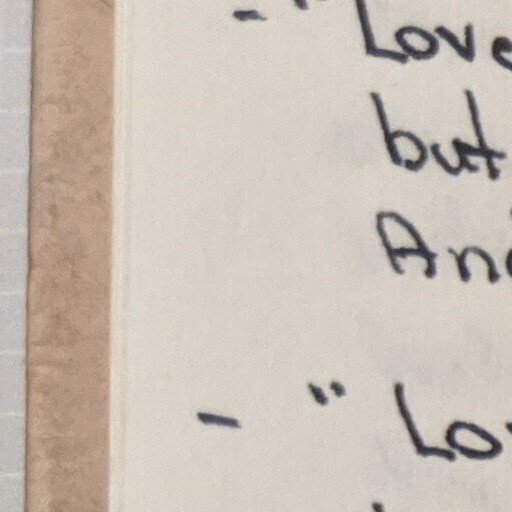 - "Love
but
And
- " Lo